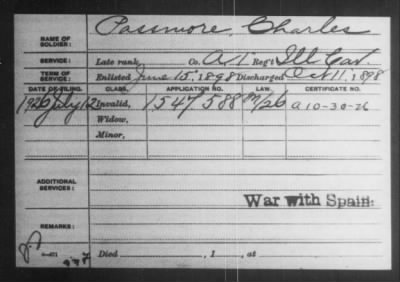 NAME OF SOLDIER: Passmore, Charles
SERVICE: Late rank, Co. A, 1 Reg't Ill Cav.
TERM OF SERVICE: Enlisted June 15, 1898 Discharged Oct 11, 1898
DATE OF FILING. CLASS. APPLICATION NO. LAW. CERTIFICATE NO.
1926 July 12 Invalid, 1547588 A 10-30-26
Widow,
Minor,
ADDITIONAL SERVICES:
War with Spain.
REMARKS:
Died , 1 , at